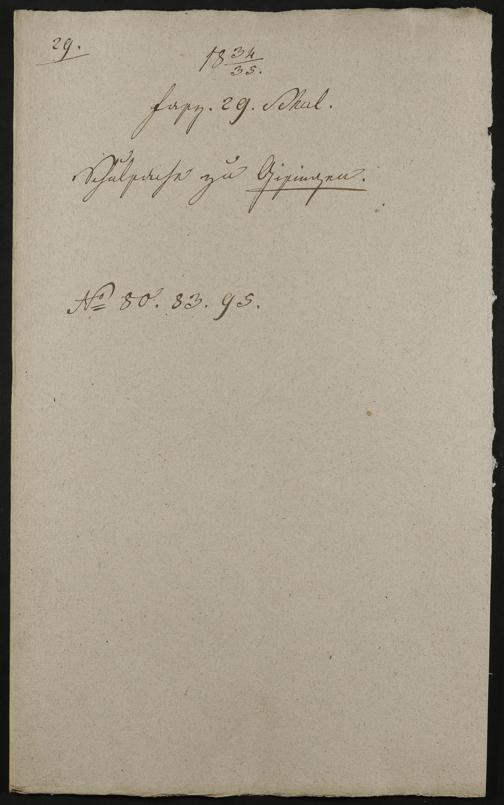 29.
18 34/35.
Fasz. 29. Schul.
Schulsache zu Gisingen.
No 80. 83. 95.